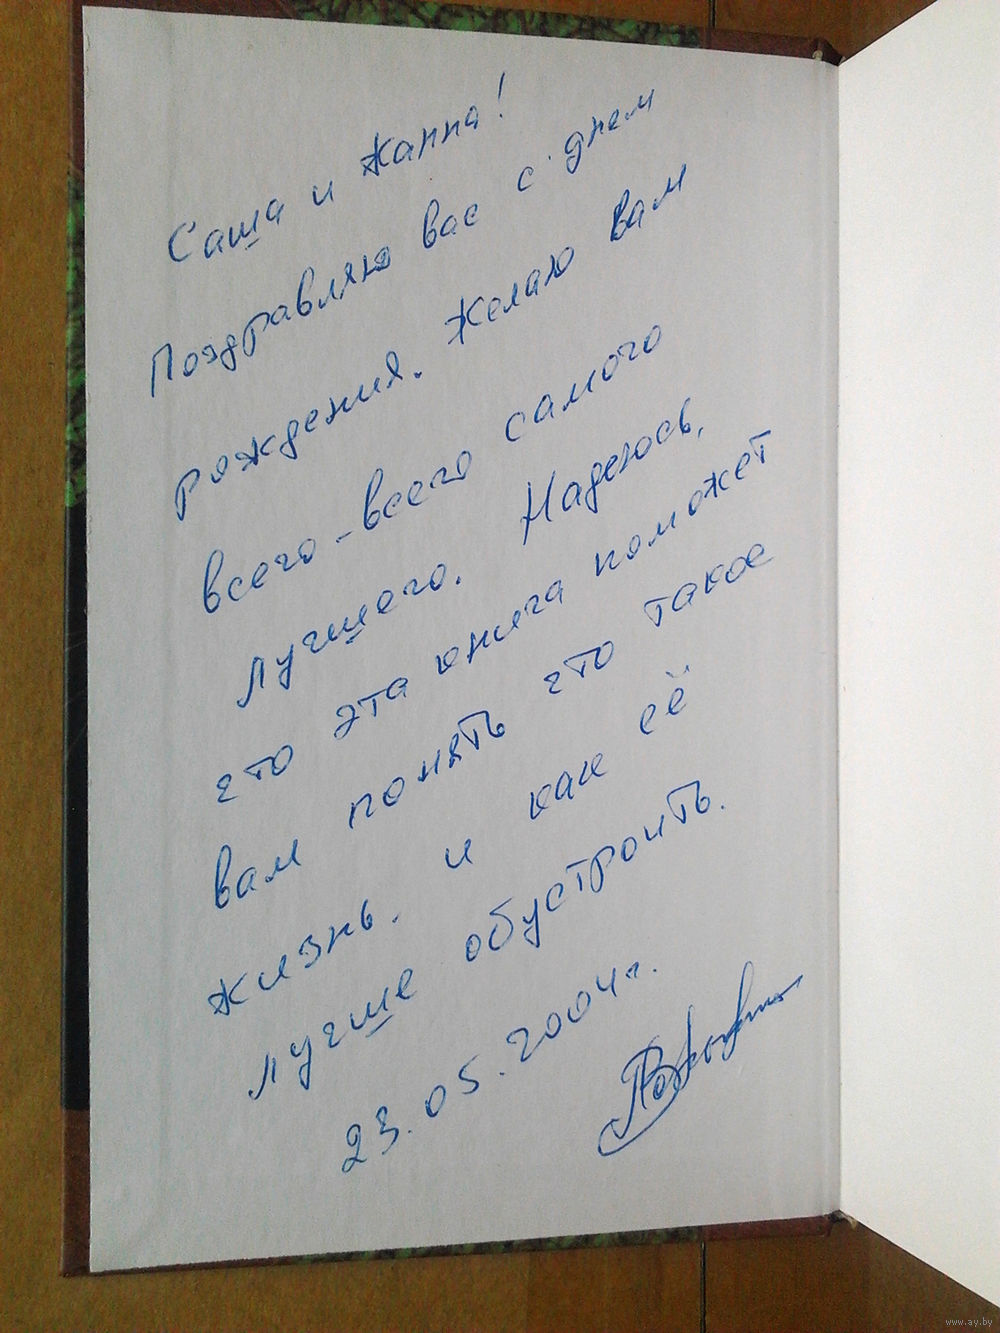 Саша и Жанна!
Поздравляю вас с днем
рождения. Желаю вам
всего-всего самого
лучшего. Надеюсь,
что эта книга поможет
вам понять что такое
жизнь. и как её
лучше обустроить.
23.05.2004г.
www.ay.by